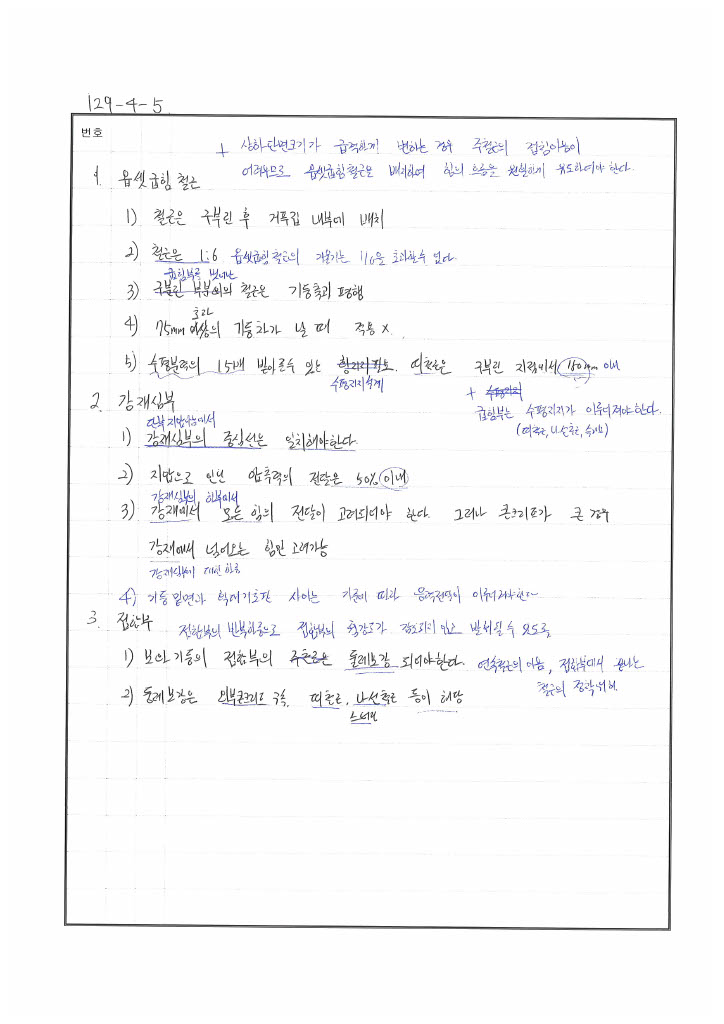 129-4-5
번호
+ 상하단면크기가 급격하게 변하는 경우 주철근의 접힘이음이
어려우므로 옵셋굽힘철근을 배치하여 힘의 흐름을 원활하게 유도하여야 한다.
1. 옵셋굽힘철근
1) 철근은 구부린 후 거푸집 내부에 배치
2) 철근은 1:6 옵셋굽힘철근의 기울기는 1/6을 초과할 수 없다.
굽힘부를 벗어난
3) 구부린 부분외의 철근은 기둥축과 평행
초과
4) 75mm 이상의 기둥차가 날 때 적용 X.
5) 수평분력의 1.5배 받아줄수 있는 횡지지 띠철근은 구부린 지점에서 150mm 이내
수평지지설계
+ 수평지지
굽힘부는 수평지지가 이루어져야한다.
(띠철근, 나선철근, 슬래브)
2. 강재심부
단부 지압이음에서
1) 강재심부의 중심선은 일치해야한다.
2) 지압으로 인한 압축력의 전달은 50% 이내
강재심부의 하부에서
3) 강재에서 모든 힘의 전달이 고려되어야 한다. 그러나 콘크리트가 큰 경우
강재에서 넘어오는 힘만 고려가능
강재심부에 대한 하중
4) 기둥 밑면과 확대기초판 사이는 기준에 따라 응력전달이 이루어져야한다
3. 접합부
접합부의 반복하중으로 접합부의 휨강도가 감소되지 않고 발휘될 수 있도록
1) 보와 기둥의 접합부의 주철근은 둘레보강 되어야한다. 연속철근의 이음, 접합부에서 끝나는
철근의 정착 위해
2) 둘레보강은 외부콘크리트 구속, 띠철근, 나선철근 등이 해당
스터럽